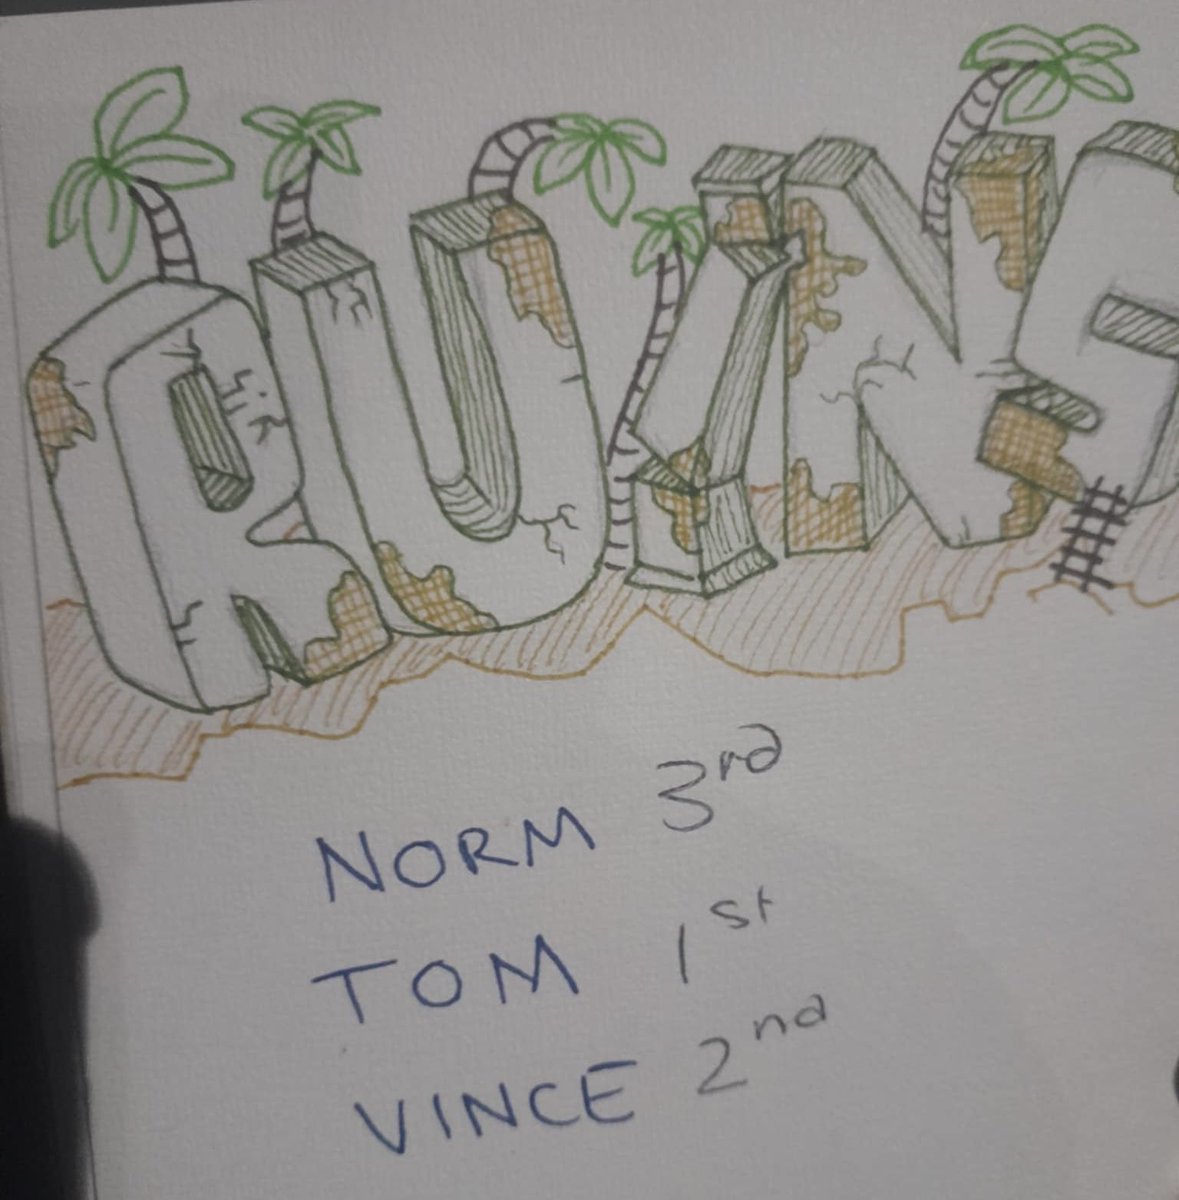 RUINS
NORM 3rd
TOM 1st
VINCE 2nd